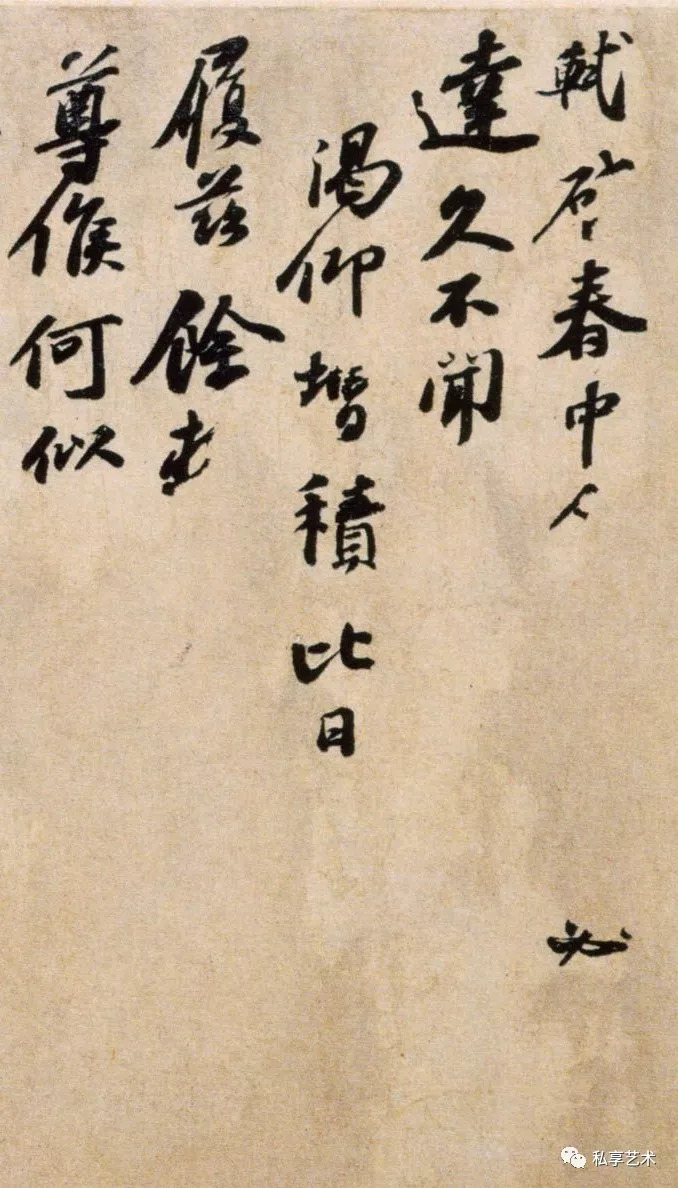 軾啓春中人必
達久不聞
渴仰增積比日
履茲餘
尊候何似
私享艺术